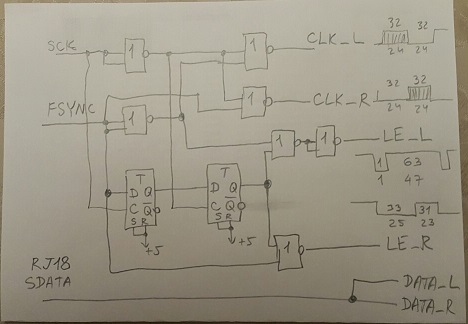 SCK
1
1
CLK_L
32 32
24 24
FSYNC
1
1
CLK_R
32 32
24 24
1
1
LE_L
1 63
1 47
T
D Q
C Q̅
S R
+5
T
D Q
C Q̅
S R
+5
33 31
25 23
1
LE_R
RJ18
SDATA
DATA_L
DATA_R